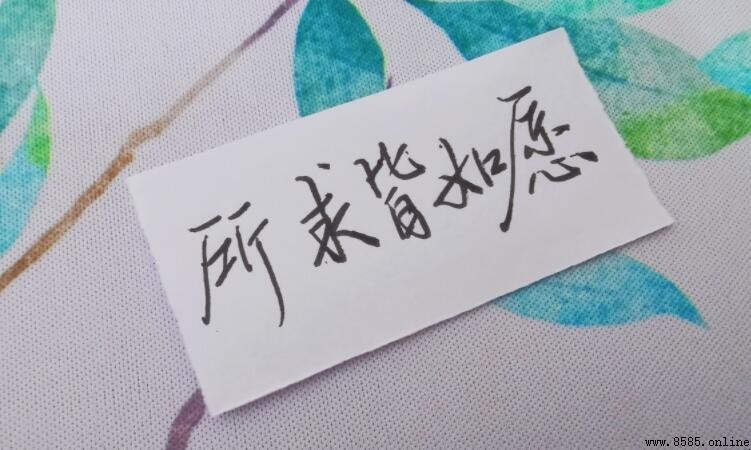 所求皆如愿
www.8585.online